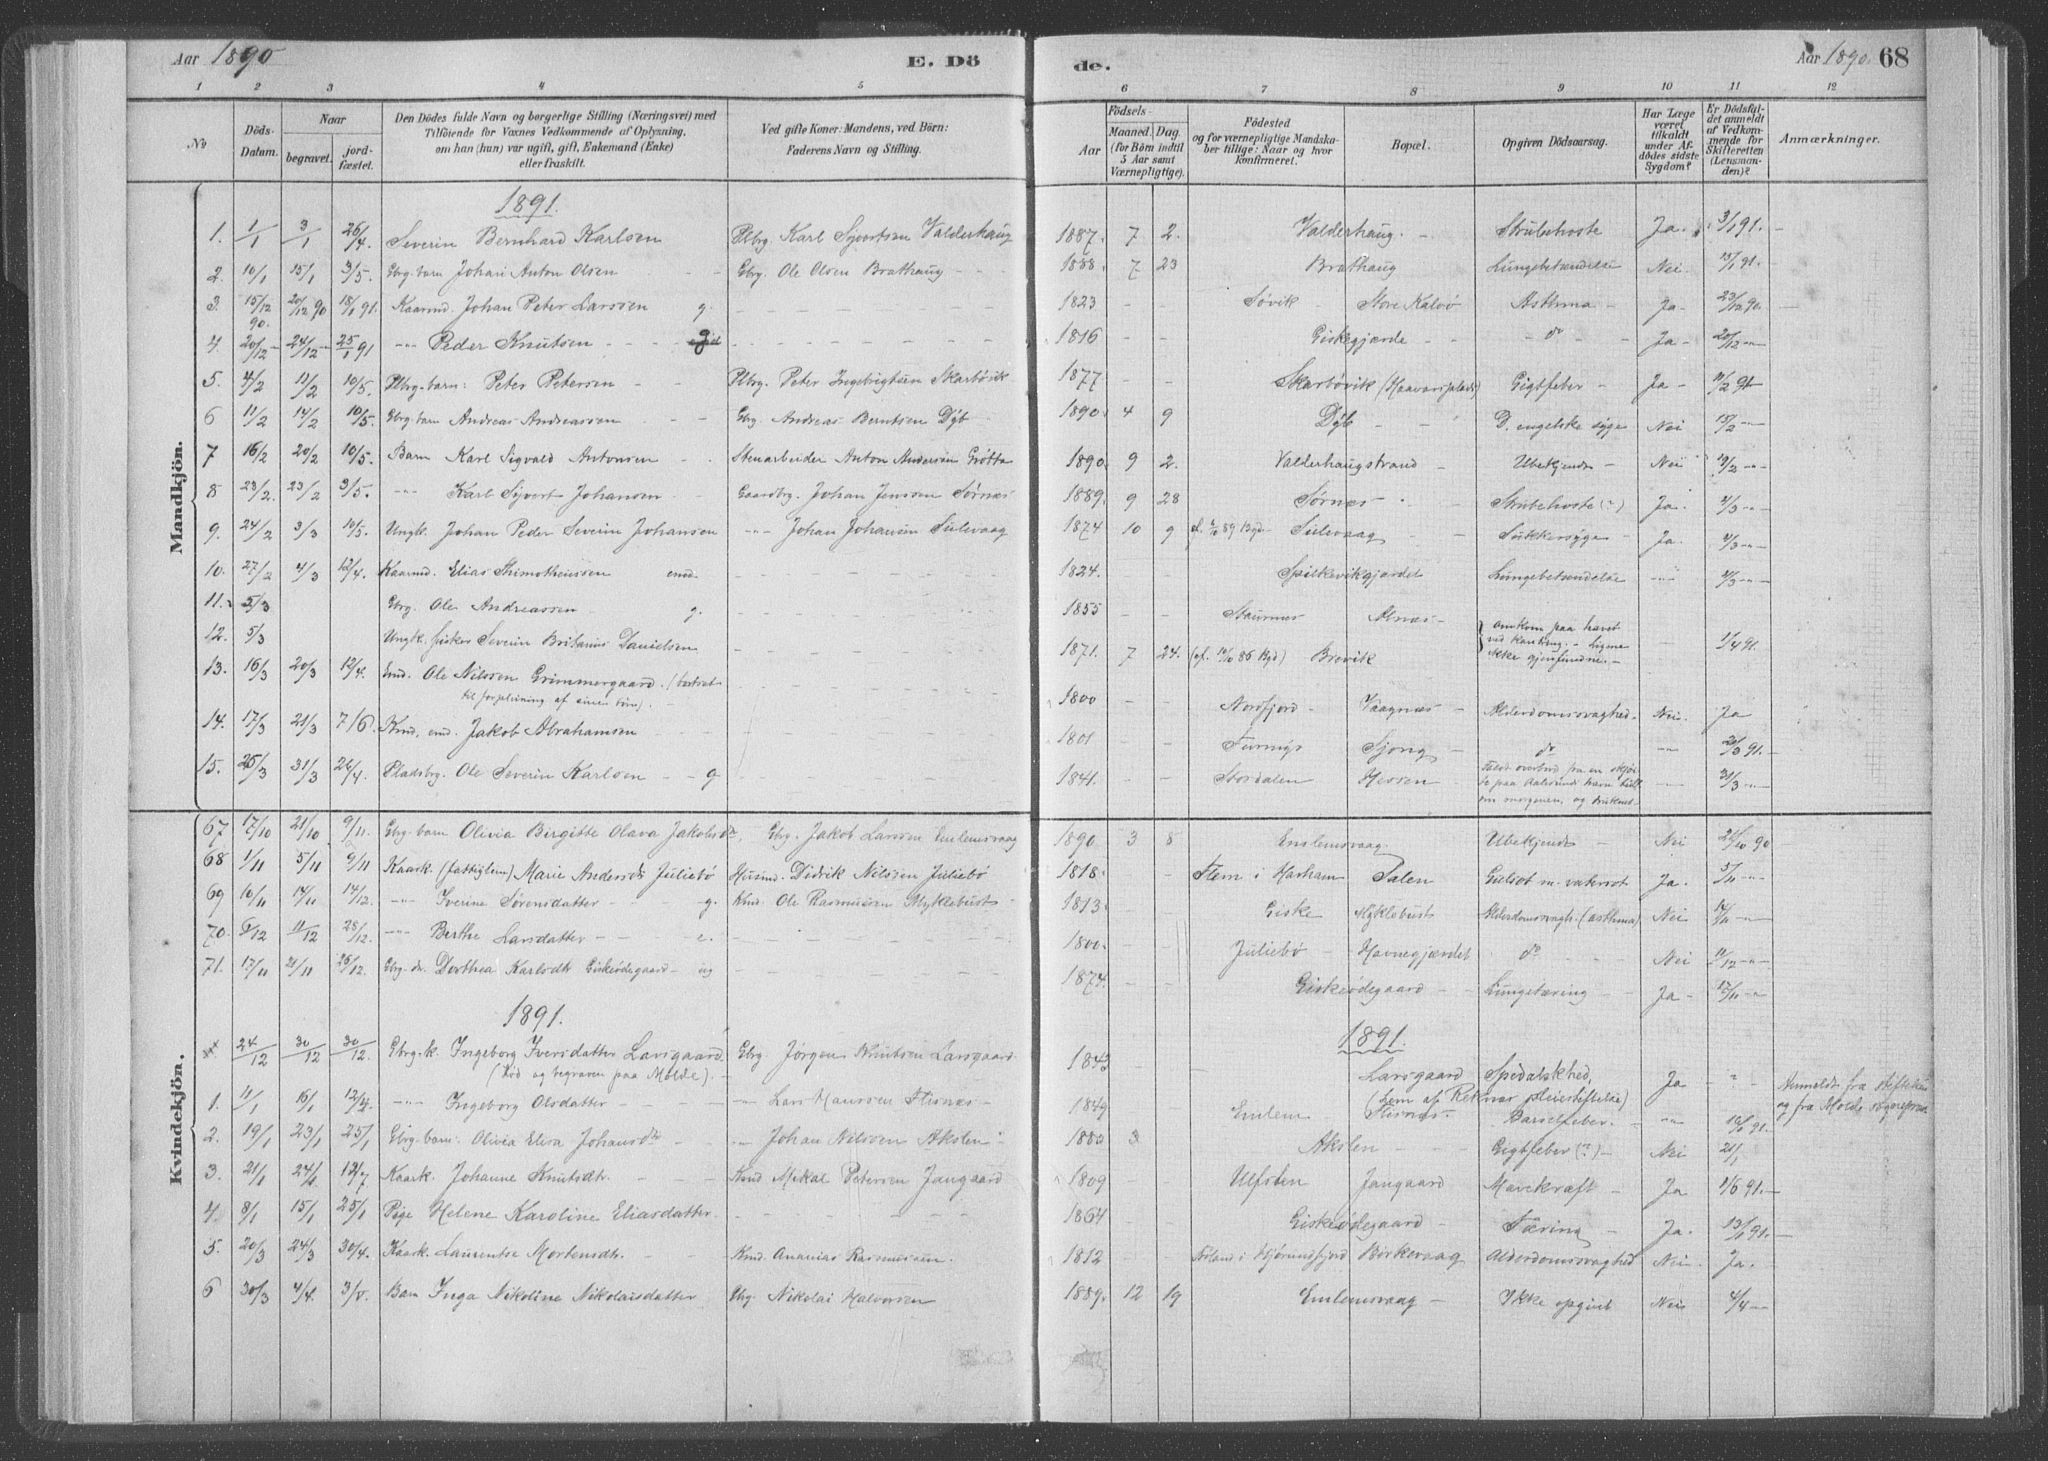 Aar 1890 E. Dö de. Aar 1890. 68
1 2 3 4 5 6 7 8 9 10 11 12
No Döds-Datum. Naar begravet. jord-fæstet. Den Dödes fulde Navn og borgerlige Stilling (Næringsvei) med Tilföiende for Voxnes Vedkommende af Oplysning, om han (hun) var ugift, gift, Enkemand (Enke) eller fraskilt. Ved gifte Koner: Mandens, ved Börn: Faderens Navn og Stilling. Födsels- Aar Maaned. Dag. (for Börn indtil 5 Aar samt Værnepligtige). Födested og for værnepligtige Mandska-ber tillige: Naar og hvor konfirmeret. Bopæl. Opgiven Dödsaarsag. Har Læge været tilkaldt under Af-dödes sidste Sygdom? Er Dödsfal-det anmeldt af Vedkom-mende for Skifteretten (Lensman-den)? Anmærkninger.
Mandkjön.
1891.
1. 1/1 3/1 26/4. Severin Bernhard Karlsen Plbrg. Karl Sjvertsen Valderhaug 1887. 7 2. Valderhaug - Strubehoste Ja. 3/1 91. -
2. 10/1 15/1 3/5. Gbrg. barn Johan Anton Olsen - - Gbrg. Ole Olsen Brathaug - - 1888. 7 23 Brathaug Lungebetændelse Nei. 15/1 91. -
3. 15/12 90. 20/12 90 18/1 91. Kaarmd. Johan Peter Larssen g. 1823 - - Søvik - Store Kalvø Asthma - Ja - 23/12 90. -
4. 20/12 - 24/12 - 25/1 91 "- Peder Knutsen - - g 1816 - - Giskegjærde - do - Ja - 20/12 -"-
5. 4/2 11/2 10/5. Plbrg. barn: Peter Petersen - - Plbrg. Peter Ingebrigtsen Skarbøvik 1877 - - Skarbøvik (Haavarsplads) Gigtfeber - Ja - 11/2 91 -
6 11/2 14/2 10/5. Gbrg. barn Andreas Andreassen - - Gbrg. Andreas Berntsen Dyb - 1890. 4 9 Dyb - - D. engelske syge Nei 13/2 -"-
7 16/2 20/2 10/5. Barn Karl Sigvald Antonsen - Stenarbeider Anton Andersen Grøtta 1890. 9 2. Valderhaugstrand - Ubekjendt - Nei 19/2 -"-
8 23/2. 23/2 3/5. -"- Karl Sjvert Johansen - Gaardbrg. Johan Jenssen Sørnæs 1889. 9 28 Sørnæs - Strubehoste (?) Ja. 2/3 -"-
9. 24/2 3/3 10/5. Ungk. Johan Peder Severin Johansen -"- Johan Johansen Sulevaag 1874 10 9 Sulevaag - - Sukkersyge - Ja. 2/3 -"-
10. 27/2 4/3 12/4. Kaarmd. Elias Thimotheussen emd. 1824. - - Spilkevikgjerdet Lungebetændelse -"- 2/3 -"-
11. 5/3 Gbrg. Ole Andreassen - g. 1855 - - Staurnæs Alnæs -
12. 5/3 Ungk. fisker Severin Britanus Danielsen 1871. 7 24. Brevik omkom paa havet ved kantring. - Ligene ikke gjenfundne. - 1/4 91.
13. 16/3 20/3 12/4. Emd. Ole Nilssen Grimmergaard. (bortsat til forpleining af sin søn). - 1800 - - Nordfjord - Vaagnæs - Alderdomssvaghed. Nei. Ja
14. 17/3 21/3 7/6. Kmd, emd. Jakob Abrahamsen 1801 - - Sjong do -"- 91.
15. 25/3 31/3 26/4. Pladsbrg. Ole Severin Karlsen - - g 1841. - - Stordalen Hessen Faldt overbord fra en skjøite paa Aalesunds havn om morgenen, og druknet. - 31/3 -"-
Kvindekjön.
67 17/10 21/10 9/11. Gbrg. barn Olivia Birgitte Olava Jakobsdr. Gbrg. Jakob Larssen Emlemsvaag 1890 3 8 Emlemsvaag. Ubekjendt - Nei 90
68 1/11 5/11 9/11 Kaark. (fattiglem) Marie Andersdr Juliebø Husmd. Didrik Nilssen Juliebø 1818. - - Flem i Harham Salen Gulsot m. vatersot Ja. 5/11 -"-
69 10/11 14/11 14/12. -"- Iverine Sørensdatter - g. Kmd. Ole Rasmussen Myklebust - 1813. - - Giske Myklebust Alderdomssvagh. (asthma) Nei -"-
70. 6/12 11/12 28/12. -"- Berthe Larsdatter - - - e. 1800. - - Juliebø - Havnegjærdet do - - Nei 11/12 -"-
71. 17/11 21/11 26/12. Gbrg. dr. Dorthea Karlsdtr Giskeødegaard - ug 1874. - - Giskeødegaard - - Lungetæring - - Ja - 17/11 -"-
1891. 1891.
24/12 30/12 30/12. Gbrg.k. Ingeborg Iversdatter Larsgaard. (Død og begraven paa Molde). - Gbrg. Jørgen Knutsen Larsgaard 1843 Larsgaard (Lem af Reknæs Pleiestiftelse) Spedalskhed, Ja - " - Anmeldt fra stiftelsen og fra Molde
1. 11/1 16/1 -"- Ingeborg Olsdatter - - -"- Lars Hanssen Flisnæs - 1849 Emlem Flisnæs - Barselfeber. - -"- 91.
2. 19/1 23/1 25/1 Gbrg. barn: Olivia Elisa Johansdtr - -"- Johan Nilssen Akslen - 3 - Akslen - - - Gigtfeber (?) - Nei 21/1
3. 21/1 12/7 Kaark. Johanne Knutsdtr. - - Kmd Mikal Petersen Jangaard 1809 - - Ulfsten Jangaard Mavekræft - Ja 1/6 91. -
4. 8/1 15/1 25/1 Pige Helene Karoline Eliasdatter. 1864 - - Giskeødegaard - Tæring - Ja. 13/1 91. -
5. 20/3 24/3 30/4. Kaark. Laurentse Mortensdtr. - - Kmd. Ananias Rasmussen. 1812 - - i Hjørundfjord Borkevaag Alderdomssvaghed Nei. Ja.
6 30/3 4/4. Barn Inga Nikoline Nikolaisdatter Gbrg. Nikolai Halvorsen 1889. 12 19 Emlemsvaag - Ikke opgivet Nei 4/4 -